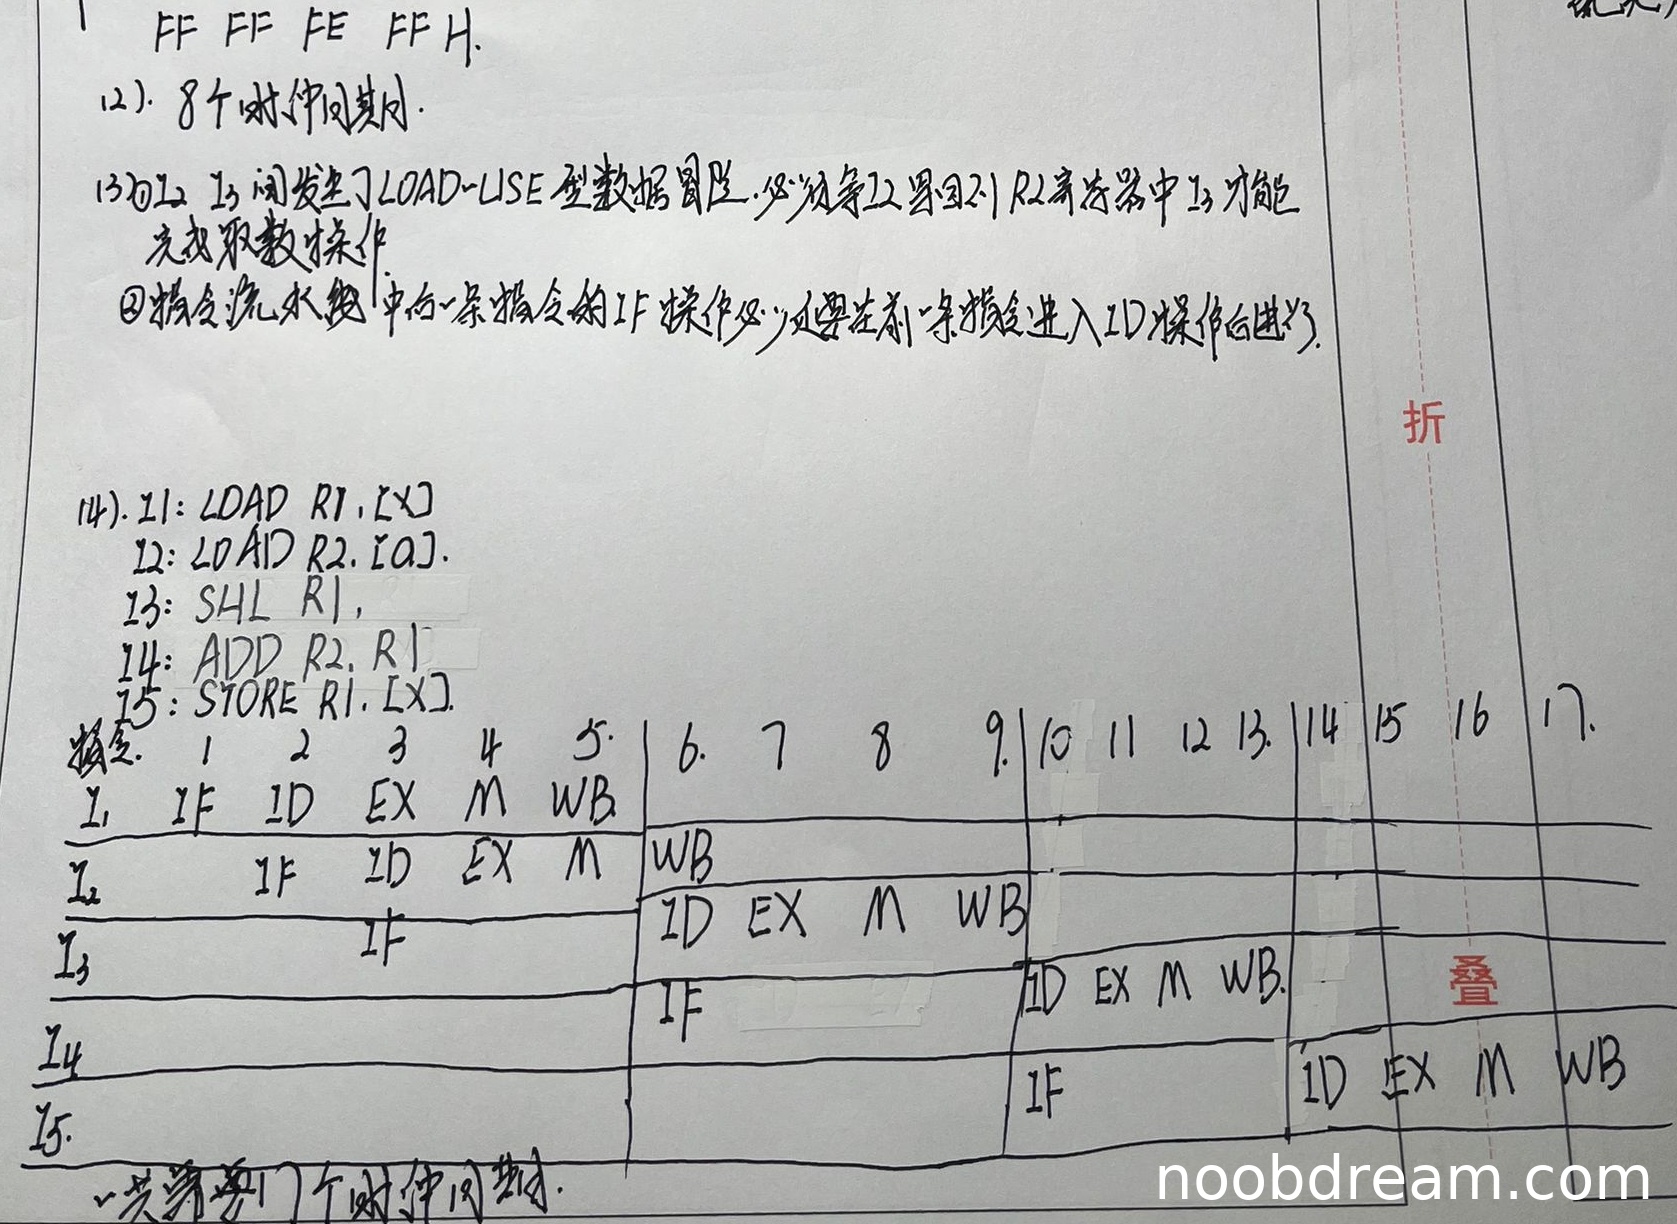 FF FF FE FF H.
(2). 8个时钟周期.
(3)①I2 I3间发生了LOAD-USE型数据冒险.必须等I2写回到R2寄存器中I3才能
完成取数操作.
②指令流水线中后一条指令的IF操作必须要在前一条指令进入ID操作后进行.
折
(4). I1: LOAD R1,[X]
I2: LOAD R2,[a].
I3: SHL R1,
I4: ADD R2,R1
I5: STORE R1,[X].
指令. 1 2 3 4 5. 6. 7 8 9. 10 11 12 13. 14 15 16 17.
I1 IF ID EX M WB.
I2 IF ID EX M WB
I3 IF ID EX M WB
I4 IF ID EX M WB.
叠
I5. IF ID EX M WB
一共需要17个时钟周期.
noobdream.com